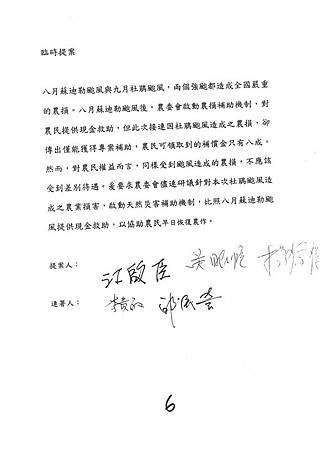 臨時提案
八月蘇迪勒颱風與九月杜鵑颱風，兩個強颱都造成全國嚴重
的農損。八月蘇迪勒颱風後，農委會啟動農損補助機制，對
農民提供現金救助，但此次接連因杜鵑颱風造成之農損，卻
傳出僅能獲得專案補助，農民可領取到的補償金只有八成。
然而，對農民權益而言，同樣受到颱風造成的農損，不應該
受到差別待遇。爰要求農委會儘速研議針對本次杜鵑颱風造
成之農業損害，啟動天然災害補助機制，比照八月蘇迪勒颱
風提供現金救助，以協助農民早日恢復農作。
提案人：
江啟臣
連署人：
6